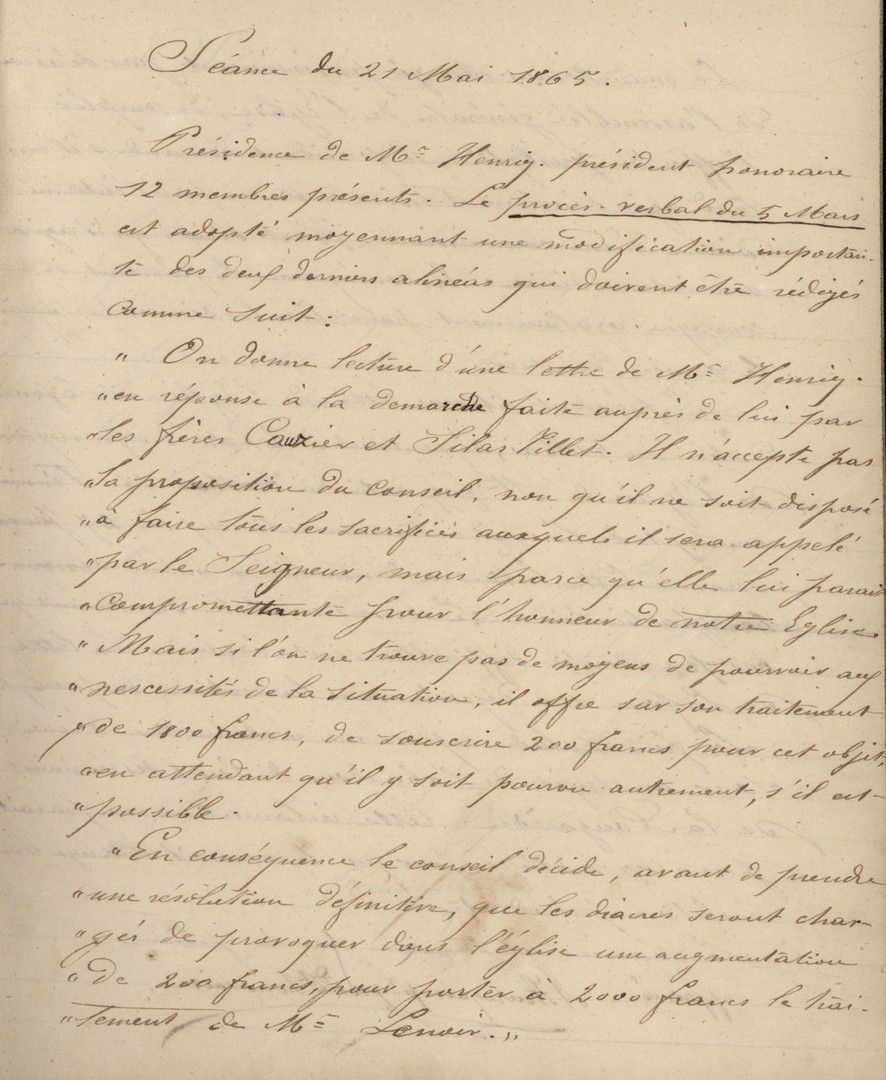 Séance du 21 Mai 1865.
Présidence de Mr Henry. président honoraire
12 membres présents. Le procès-verbal du 5 Mars
est adopté moyennant une modification importan-
te des deux derniers alinéas qui doivent être rédigés
comme suit :
" On donne lecture d'une lettre de Mr Henry.
" en réponse à la demarche faite auprès de lui par
" les frères Cauzier et Silas Villet. Il n'accepte pas
" la proposition du conseil, non qu'il ne soit disposé
" à faire tous les sacrifices auxquels il sera appelé
" par le Seigneur, mais parce qu'elle lui parait
" compromettante pour l'honneur de notre Eglise.
" Mais si l'on ne trouve pas de moyens de pourvoir aux
" nescessités de la situation, il offre sur son traitement
" de 1800 francs, de souscrire 200 francs pour cet objet,
" en attendant qu'il y soit pourvu autrement, s'il est
" possible.
" En conséquence le conseil décide, avant de prendre
" une résolution définitive, que les diacres seront char-
" gés de provoquer dans l'église une augmentation
" de 200 francs, pour porter à 2000 francs le trai-
" tement de Mr Lenoir. "